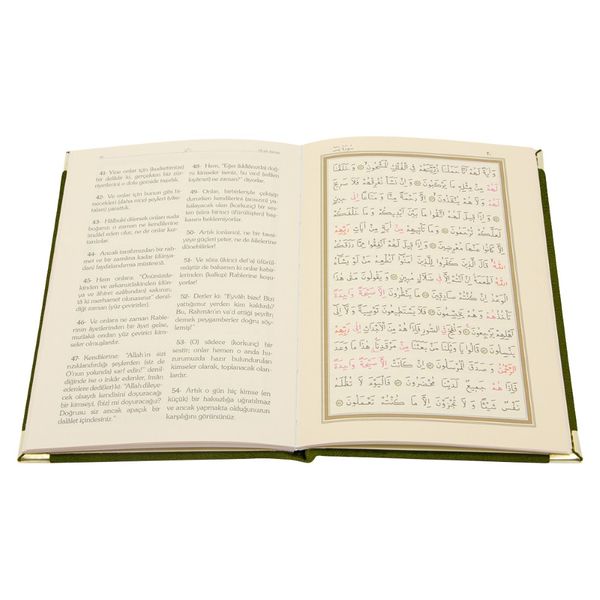 41- Yine onlar için (kudretimize)
bir delildir ki, gerçekten biz zür-
riyetlerini o dolu gemide taşıdık.
42- Ve onlar için bunun gibi bi-
necekleri (daha nice) şeyleri (vâsı-
taları) yarattık.
43- Hâlbuki dilersek onları suda
boğarız; o zaman ne kendilerine
imdâd eden olur, ne de onlar kur-
tarılırlar.
44- Ancak tarafımızdan bir rah-
met ve bir zamâna kadar (dünya-
dan) faydalandırma müstesnâ.
45- Hem onlara: "Önünüzde-
kinden ve arkanızdakinden (dün-
ya ve âhiret azâbından) sakının;
tâ ki merhamet olunasınız" denil-
diği zaman (yüz çevirirler).
46- Ve onlara ne zaman Rable-
rinin âyetlerinden bir âyet gelse,
mutlaka ondan yüz çevirici kim-
seler olmuşlardır.
47- Kendilerine: "Allah'ın sizi
rızıklandırdığı şeylerden (siz de
O'nun yolunda) sarf edin!" denil-
diğinde ise o inkâr edenler, îmân
edenlere dediler ki: "Allah dileye-
cek olsaydı kendisini doyuracağı
bir kimseyi, (biz) mi doyuracağız?
Doğrusu siz ancak apaçık bir
dalâlet içindesiniz."
48- Hem, "Eğer (iddiânızda) doğ-
ru kimseler iseniz, bu vaad (edilen
kıyâmet) ne zaman?" diyorlar.
49- Onlar, birbirleriyle çekişip
dururken kendilerini (ansızın) ya-
kalayacak olan (korkunç) bir ses-
ten (sûra birinci üfürülüşten) baş-
kasını beklemiyorlar.
50- Artık (onlar) ne bir tavsi-
yeye güçleri yeter, ne de âilelerine
dönebilirler!
51- Ve sûra (ikinci def'a) üfürül-
müştür de bakarsın ki onlar kabir-
lerinden (kalkıp) Rablerine koşu-
yorlar.
52- Derler ki: "Eyvâh bize! Bizi
yattığımız yerden kim kaldırdı?
Bu, Rahmân'ın va'd ettiği şeydir;
demek peygamberler doğru söyle-
miş!"
53- (O) sâdece (korkunç) bir
sestir; onlar hemen o anda hu-
zurumuzda hazır bulundurulan
kimseler olarak, toplanacak olan-
lardır.
54- Artık o gün hiç kimse (en
küçük) bir haksızlığa uğratılmaz
ve ancak yapmakta olduğunuzun
karşılığını görürsünüz.
وَاٰيَةٌ لَهُمْ اَنَّا حَمَلْنَا ذُرِّيَّتَهُمْ فِي الْفُلْكِ الْمَشْحُونِ وَخَلَقْنَا
لَهُمْ مِنْ مِثْلِهِ مَا يَرْكَبُونَ وَاِنْ نَشَأْ نُغْرِقْهُمْ فَلَا صَرِيخَ
لَهُمْ وَلَا هُمْ يُنْقَذُونَ اِلَّا رَحْمَةً مِنَّا وَمَتَاعًا اِلٰى
حِينٍ وَاِذَا قِيلَ لَهُمُ اتَّقُوا مَا بَيْنَ اَيْدِيكُمْ وَمَا خَلْفَكُمْ
لَعَلَّكُمْ تُرْحَمُونَ وَمَا تَأْتِيهِمْ مِنْ اٰيَةٍ مِنْ اٰيَاتِ رَبِّهِمْ
اِلَّا كَانُوا عَنْهَا مُعْرِضِينَ وَاِذَا قِيلَ لَهُمْ اَنْفِقُوا مِمَّا رَزَقَكُمُ
اللّٰهُ قَالَ الَّذِينَ كَفَرُوا لِلَّذِينَ اٰمَنُوا اَنُطْعِمُ مَنْ لَوْ يَشَاءُ
اللّٰهُ اَطْعَمَهُ اِنْ اَنْتُمْ اِلَّا فِي ضَلَالٍ مُبِينٍ وَيَقُولُونَ مَتٰى هٰذَا
الْوَعْدُ اِنْ كُنْتُمْ صَادِقِينَ مَا يَنْظُرُونَ اِلَّا صَيْحَةً وَاحِدَةً
تَأْخُذُهُمْ وَهُمْ يَخِصِّمُونَ فَلَا يَسْتَطِيعُونَ تَوْصِيَةً وَلَا اِلٰى
اَهْلِهِمْ يَرْجِعُونَ وَنُفِخَ فِي الصُّورِ فَاِذَا هُمْ مِنَ الْاَجْدَاثِ اِلٰى رَبِّهِمْ
يَنْسِلُونَ قَالُوا يَا وَيْلَنَا مَنْ بَعَثَنَا مِنْ مَرْقَدِنَا هٰذَا مَا وَعَدَ
الرَّحْمٰنُ وَصَدَقَ الْمُرْسَلُونَ اِنْ كَانَتْ اِلَّا صَيْحَةً وَاحِدَةً
فَاِذَا هُمْ جَمِيعٌ لَدَيْنَا مُحْضَرُونَ فَالْيَوْمَ لَا تُظْلَمُ
نَفْسٌ شَيْئًا وَلَا تُجْزَوْنَ اِلَّا مَا كُنْتُمْ تَعْمَلُونَ